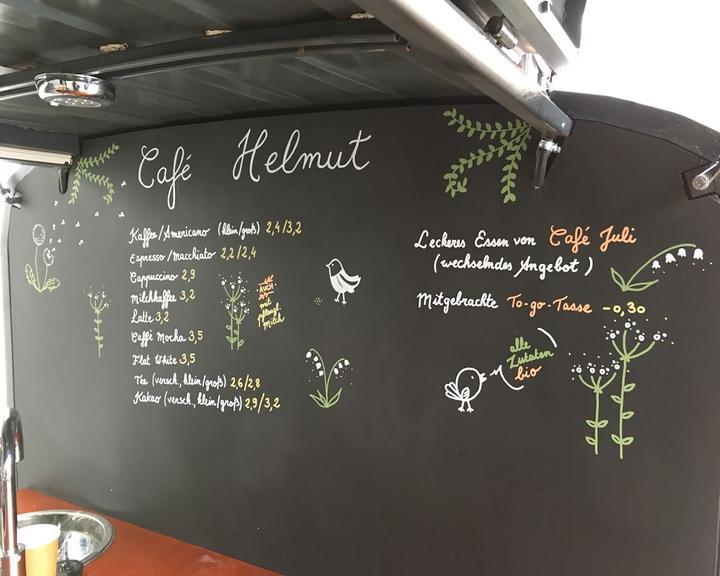 Café Helmut
Kaffee/Americano (klein/groß) 2,4/3,2
Espresso/macchiato 2,2/2,4
Cappuccino 2,9
Milchkaffee 3,2
Latte 3,2
Caffè Mocha 3,5
Flat White 3,5
Tee (versch., klein/groß) 2,6/2,8
Kakao (versch., klein/groß) 2,9/3,2
AUCH
mit
pflanzl.
milch
Leckeres Essen von Café Juli
(wechselndes Angebot)
Mitgebrachte To-go-Tasse -0,30
alle
Zutaten
bio